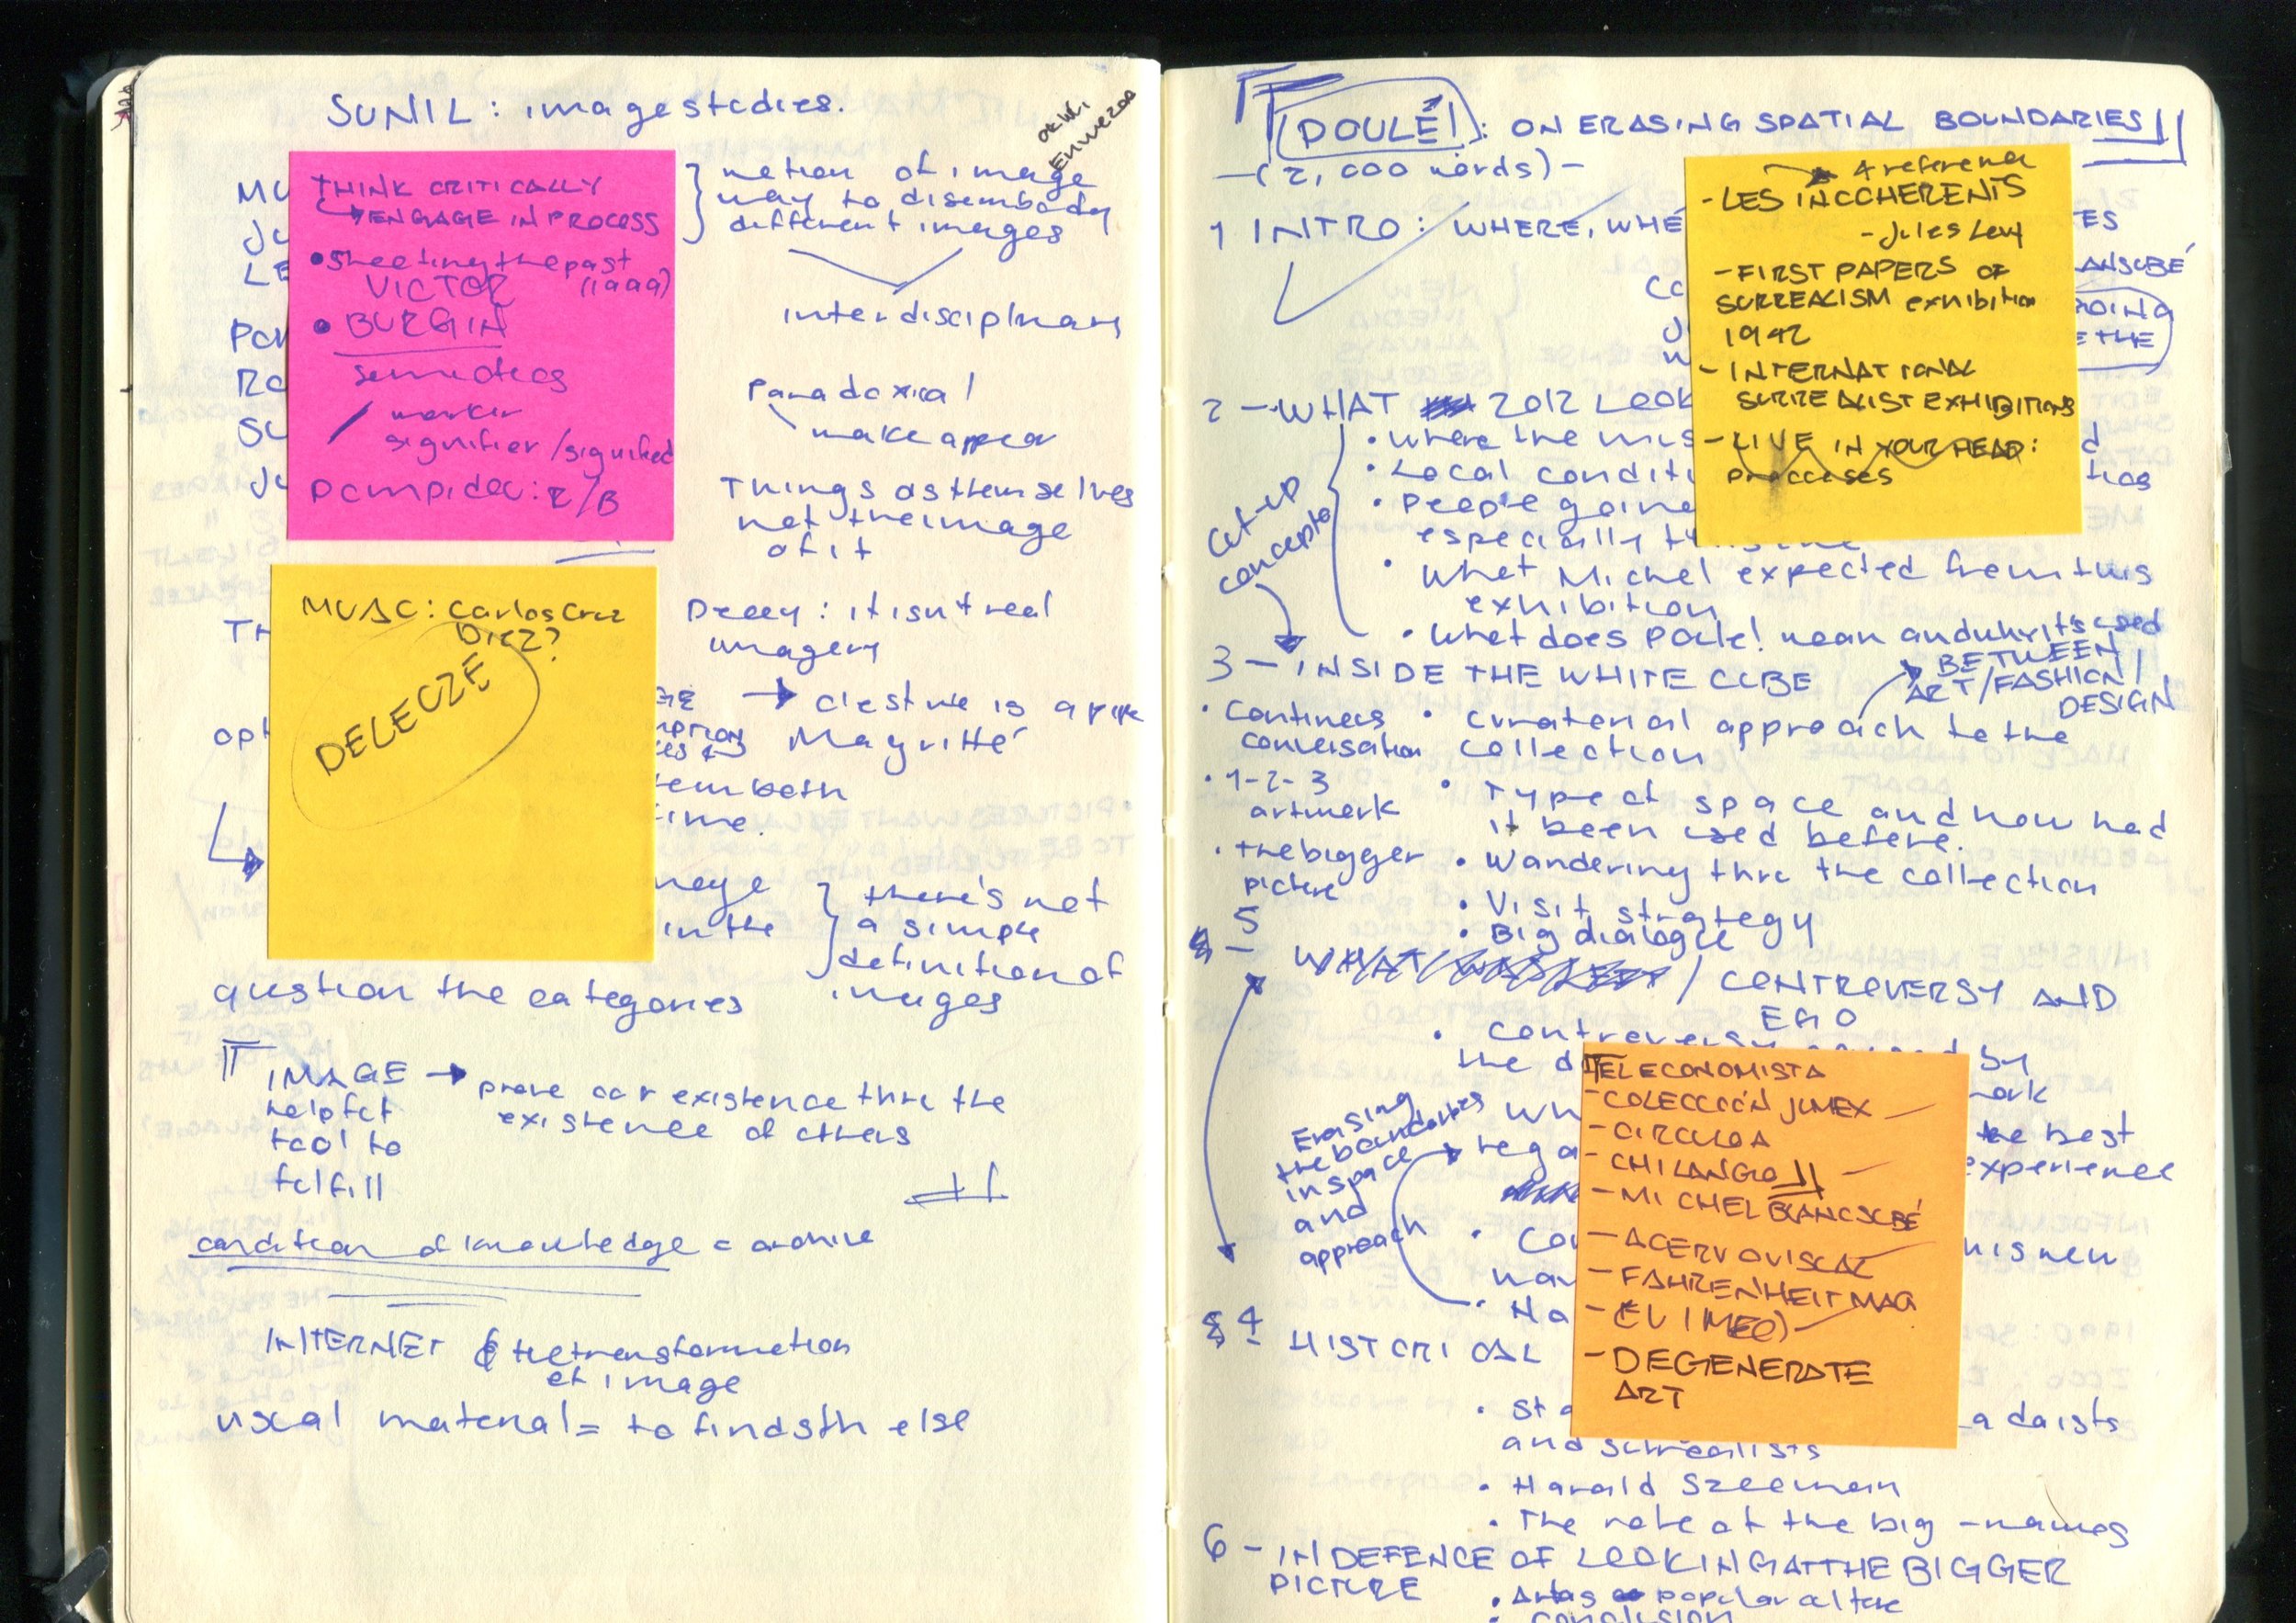 SUNIL: image studies.
okwi
Enwezor
MU
JU
LE
POM
RO
SU
JU
TH
THINK CRITICALLY
ENGAGE IN PROCESS
• Shooting the past
VICTOR (1999)
• BURGIN
semiotics
marker
signifier/signified
Pompidou: R/B
notion of image
way to disembody
different images
interdisciplinary
Paradoxical
make appear
Things as themselves
not the image
of it
MUAC: Carlos Cruz
Diez?
DELEUZE
Decoy: it isn't real
imagery
→ c'est ne is a pipe
Magritté
opt
them both
time.
in the
there's not
a simple
definition of
images
question the categories
IMAGE → prove our existence thru the
existence of others
helpful
tool to
fulfill
condition of knowledge = archive
INTERNET & the transformation
of image
usual material = to find sth else
POULE!: ON ERASING SPATIAL BOUNDARIES
—(2,000 words)—
1 INTRO: WHERE, WHE
ES
ANSUBÉ
CO
OING
E THE
→ A reference
- LES INCOHERENTS
- Jules Levy
- FIRST PAPERS OF
SURREALISM exhibition
1942
- INTERNATIONAL
SURREALIST EXHIBITIONS
- LIVE IN YOUR HEAD:
processes
2 - WHAT 2012 LOOK
• where the mus
• Local conditi
• People going
especially
• What Michel expected from this
exhibition
• What does Poule! mean and why it's used
Cut-up
concepts
3 - INSIDE THE WHITE CUBE
BETWEEN
ART/FASHION/
DESIGN
• Continuous
conversation
• curatorial approach to the
collection
• 1-2-3
artwork
• Type of space and how had
it been used before.
• the bigger
picture
• Wandering thru the collection
• Visit strategy
• Big dialogue
5 - / CONTROVERSY AND
EGO
• controversy caused by
the d
ork
Wh
the best
rega
experience
Erasing
the boundaries
in space
and
approach
• Co
his new
• No
EL ECONOMISTA
- COLECCIÓN JUMEX
- CIRCULO A
- CHILANGO
- MICHEL BLANCSUBÉ
- ACERVO VISUAL
- FAHRENHEIT MAG
- DEGENERATE
ART
4 - HISTORICAL
• Sta
adaists
and surrealists
• Harald Szeemann
• The role of the big-names
6 - IN DEFENCE OF LOOKING AT THE BIGGER
PICTURE
• popular culture
• conclusion